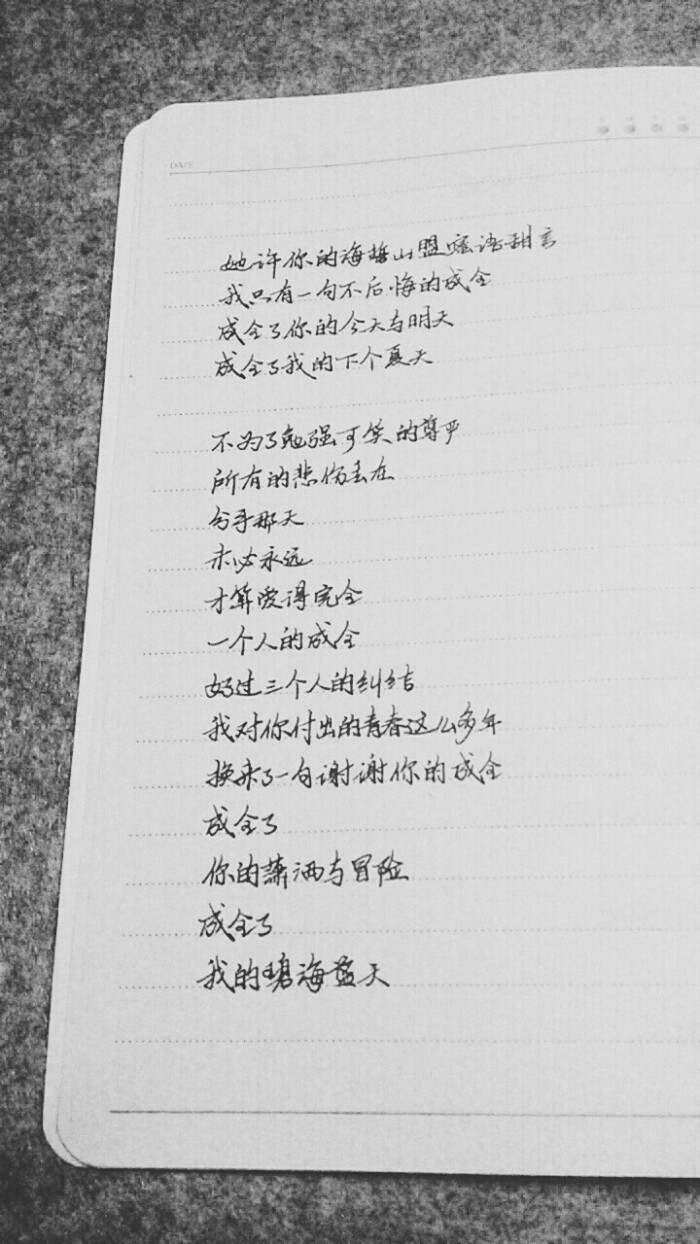 DATE
她许你的海誓山盟蜜语甜言
我只有一句不后悔的成全
成全了你的今天与明天
成全了我的下个夏天
不为了勉强可笑的尊严
所有的悲伤丢在
分手那天
未必永远
才算爱得完全
一个人的成全
好过三个人的纠结
我对你付出的青春这么多年
换来了一句谢谢你的成全
成全了
你的潇洒与冒险
成全了
我的碧海蓝天